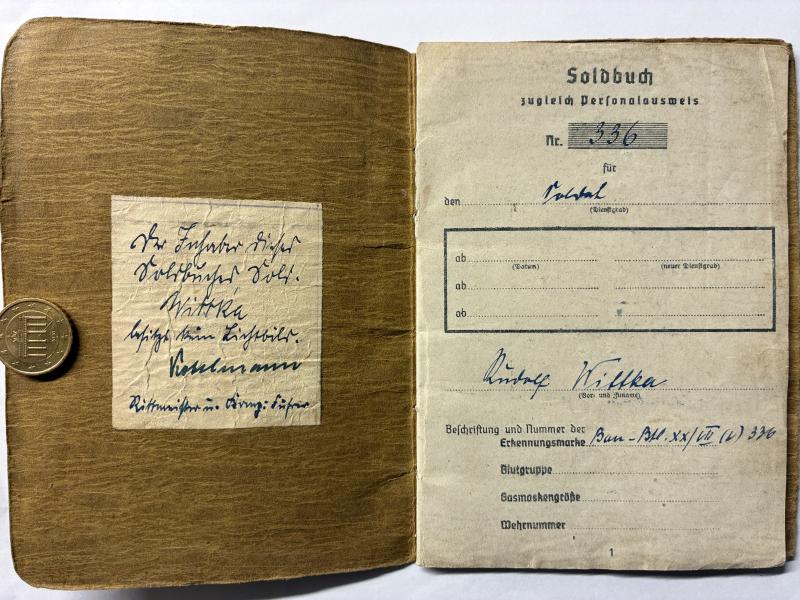 Der Inhaber dieses
Soldbuches, Sold.
Wittka
besitzt kein Lichtbild.
Rittmeister u. Komp. Führer
Soldbuch
zugleich Personalausweis
Nr. 336
für
den Soldat
(Dienstgrad)
ab
(Datum) (neuer Dienstgrad)
ab
ab
Rudolf Wittka
(Vor- und Zuname)
Beschriftung und Nummer der
Erkennungsmarke Bau-Btl. XX/VII (K) 336
Blutgruppe
Gasmaskengröße
Wehrnummer
1